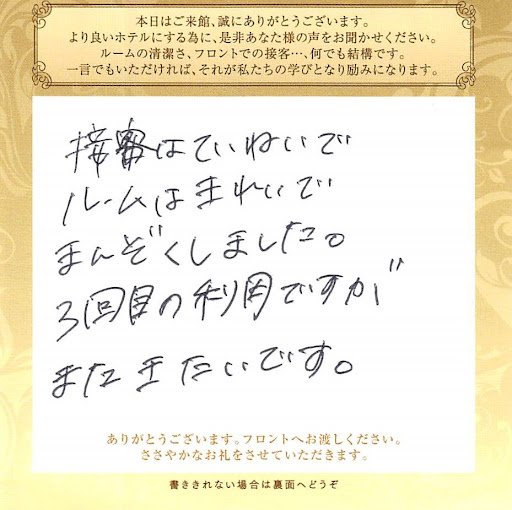 本日はご来館、誠にありがとうございます。
より良いホテルにする為に、是非あなた様の声をお聞かせください。
ルームの清潔さ、フロントでの接客…、何でも結構です。
一言でもいただければ、それが私たちの学びとなり励みになります。
接客はていねいで
ルームはきれいで
まんぞくしました。
3回目の利用ですが
またきたいです。
ありがとうございます。フロントへお渡しください。
ささやかなお礼をさせていただきます。
書ききれない場合は裏面へどうぞ